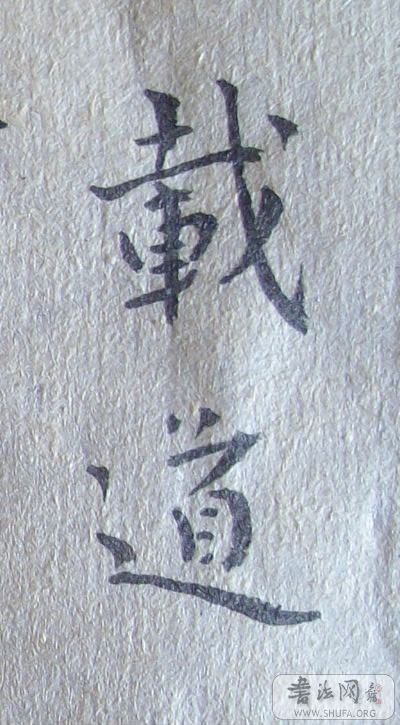 載道
書法网
WWW.SHUFA.ORG